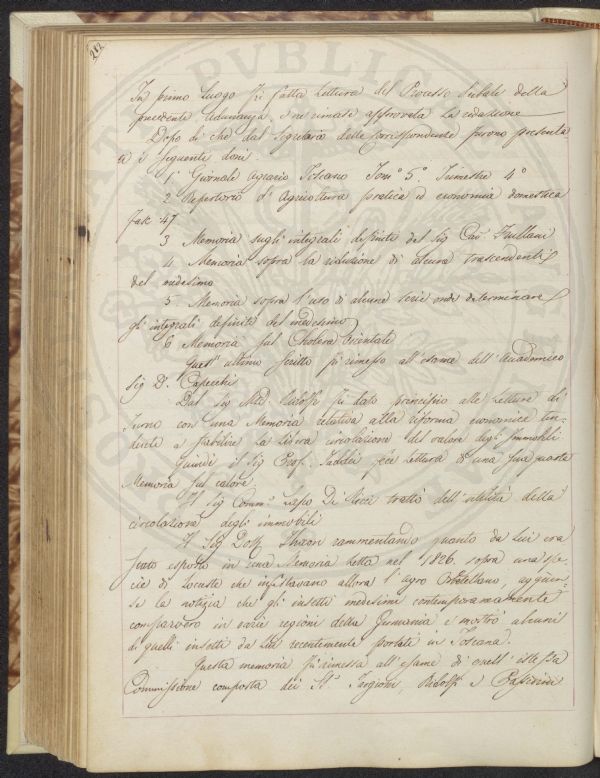 212
In primo luogo fù fatta lettura del Processo Verbale della
precedente Adunanza, e ne rimase approvata la redazione
Dopo di che dal Segretario delle Corrispondenze furono presenta
ti i seguenti doni:
1° Giornale agrario Toscano Tom° 5° Trimestre 4°
2 Repertorio d'Agricoltura pratica ed economia domestica
Fasc: 47
3 Memoria sugli integrali definiti del Sig Cav. Frullani
4 Memoria sopra la riduzione di alcune trascendenti
del medesimo
5 Memoria sopra l'uso di alcune serie onde determinare
gli integrali definiti del medesimo
6 Memoria sul Cholera Orientale
Quest' ultimo Scritto fù rimesso all'esame dell'Accademico
Sig D. Capecchi
Dal Sig. Ridolfi fù dato principio alle letture di
turno con una Memoria relativa alla riforma economica ten-
dente a stabilire la libera circolazione del valore degli Immobili
Quindi il Sig Prof. Taddei fece lettura di una sua quarta
Memoria sul calore.
Il Sig Comm. Lapo De Ricci trattò dell'utilità della
circolazione degli immobili
Il Sig Dott. rammentando quanto da Lui era
stato esposto in una Memoria letta nel 1826. sopra una spe-
cie di locuste che infestavano allora l'agro Orbetellano, aggiun-
se la notizia che gli insetti medesimi contemporaneamente
comparvero in varie regioni della Germania e mostrò alcuni
di quelli insetti da Lui recentemente portati in Toscana.
Questa memoria fù rimessa all'esame di quell'istessa
Commissione composta dei Sri. Targioni, Ridolfi e Passerini